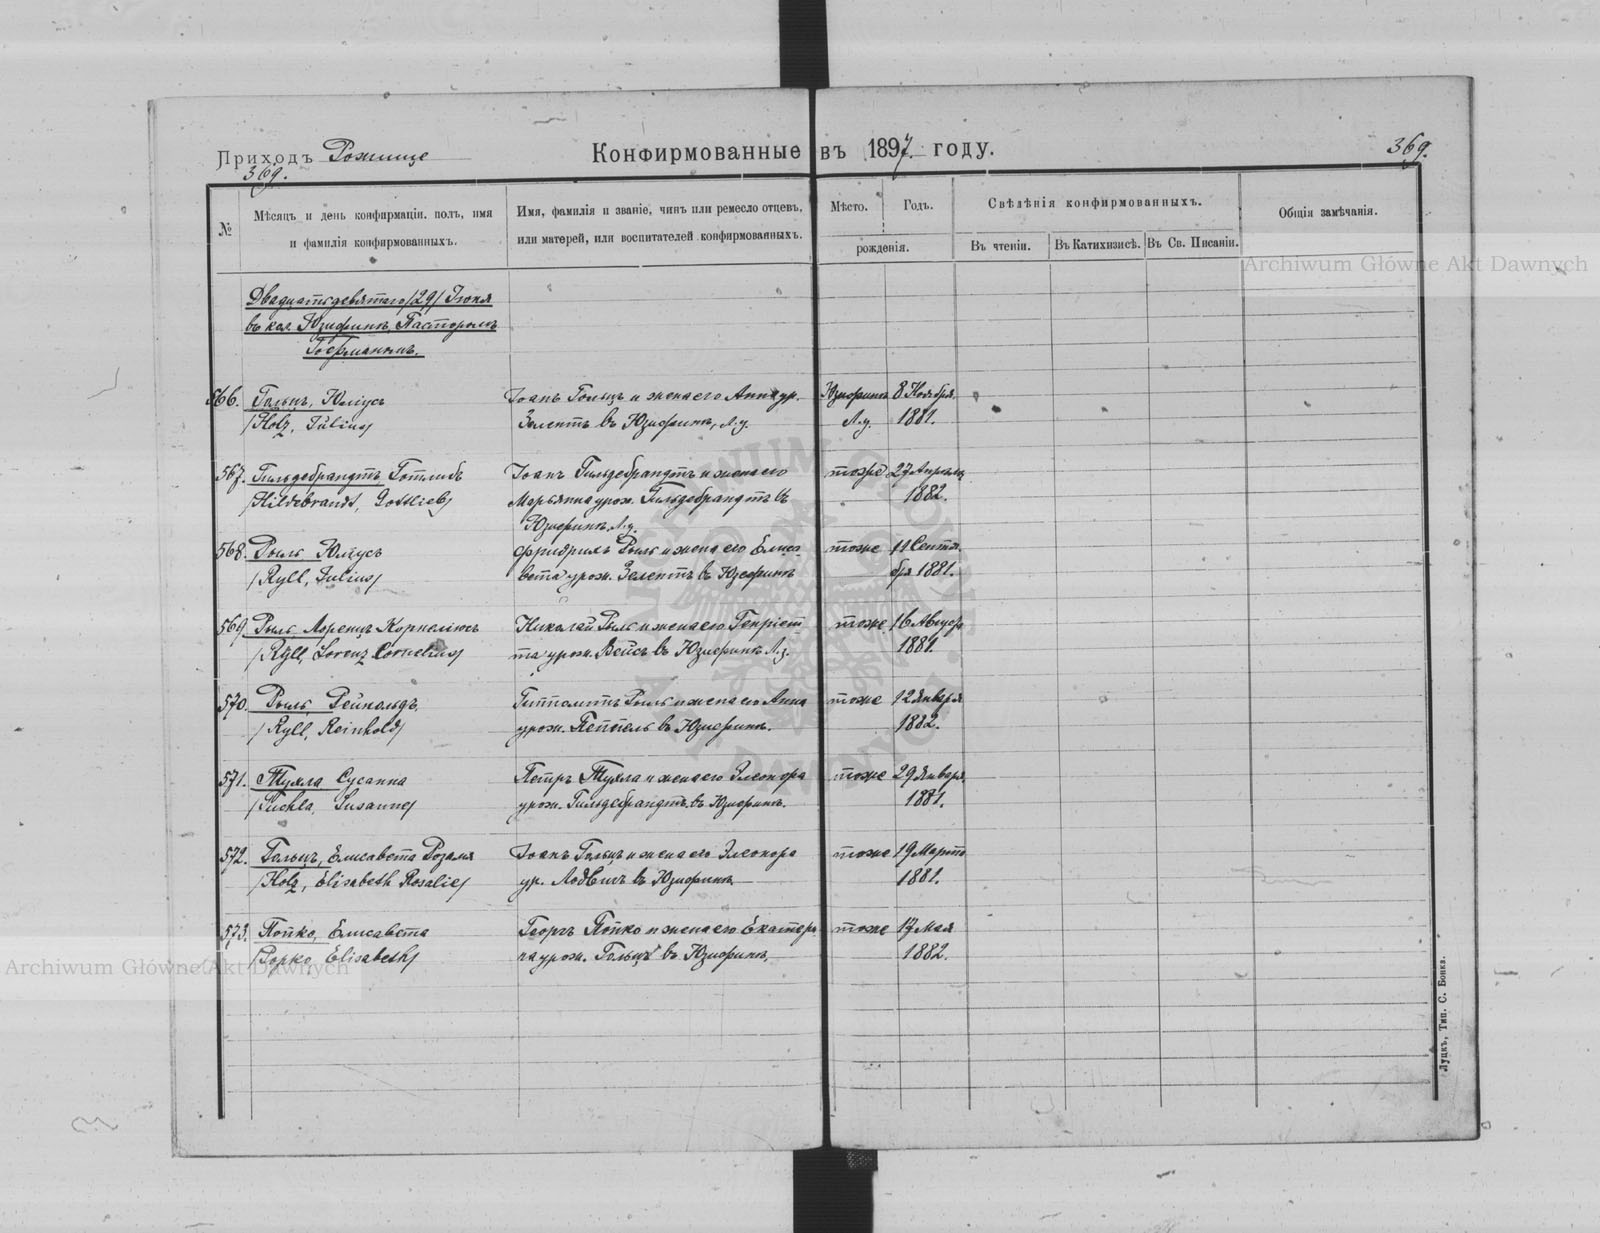 Приходъ Рожище
Конфирмованные въ 1897. году.
369.
369.
№
Мѣсяцъ и день конфирмаціи. полъ, имя
и фамилія конфирмованныхъ.
Имя, фамилія и званіе, чинъ или ремесло отцевъ,
или матерей, или воспитателей конфирмованныхъ.
Мѣсто. Годъ.
рожденія.
Свѣдѣнія конфирмованныхъ.
Въ чтеніи. Въ Катихизисѣ. Въ Св. Писаніи.
Общія замѣчанія.
Archiwum Główne Akt Dawnych
Двадцатьдевятаго /29/ Іюня
въ кол. Юзефинъ, Пасторомъ
566. Гольцъ, Юліусъ
/Holz, Julius/
Іоанъ Гольцъ и жена его Анна ур.
Зелентъ въ Юзефинѣ, Л.у.
Юзефинъ 8 Ноября
Л.у. 1881.
567. Гильдебрандтъ Готлибъ
/Hildebrandt, Gottlieb/
Іоанъ Гильдебрандтъ и жена его
Марьянна урож. Гильдебрандтъ въ
Юзефинѣ, Л.у.
тоже 27 Апрѣля
1882.
568. Рыль Юліусъ
/Ryll, Julius/
Фридрихъ Рыль и жена его Елиса
вета урож. Зелентъ въ Юзефинѣ
тоже 11 Сентя
бря 1881.
569. Рыль, Лоренцъ Корнеліюсъ
/Ryll, Lorenz Cornelius/
Николай Рыль и жена его Генріет
та урож. Вейсъ въ Юзефинѣ Л.у.
тоже 16 Августа
1881.
570. Рыль, Рейнольдъ,
/Ryll, Reinhold/
Рыль и жена его Анна
урож. Пеппель въ Юзефинѣ.
тоже 12 Января
1882.
571. Тухла Сусанна
/Tuchla, Susanne/
Петръ Тухла и жена его Элеонора
урож. Гильдебрандтъ въ Юзефинѣ.
тоже 29 Января
1881.
572. Гольцъ, Елисавета Розалія
/Holz, Elisabeth Rosalie/
Іоанъ Гольцъ и жена его Элеонора
ур. Лодвигъ въ Юзефинѣ.
тоже 19 Марта
1881.
573. Попко, Елисавета
/Popko, Elisabeth/
Георгъ Попко и жена его Екатери
на урож. Гольцъ въ Юзефинѣ,
тоже 17 Мая
1882.
Archiwum Główne Akt Dawnych
Луцкъ, Тип. С. Бонка.
ARCHIWUM GŁÓWNE AKT DAWNYCH